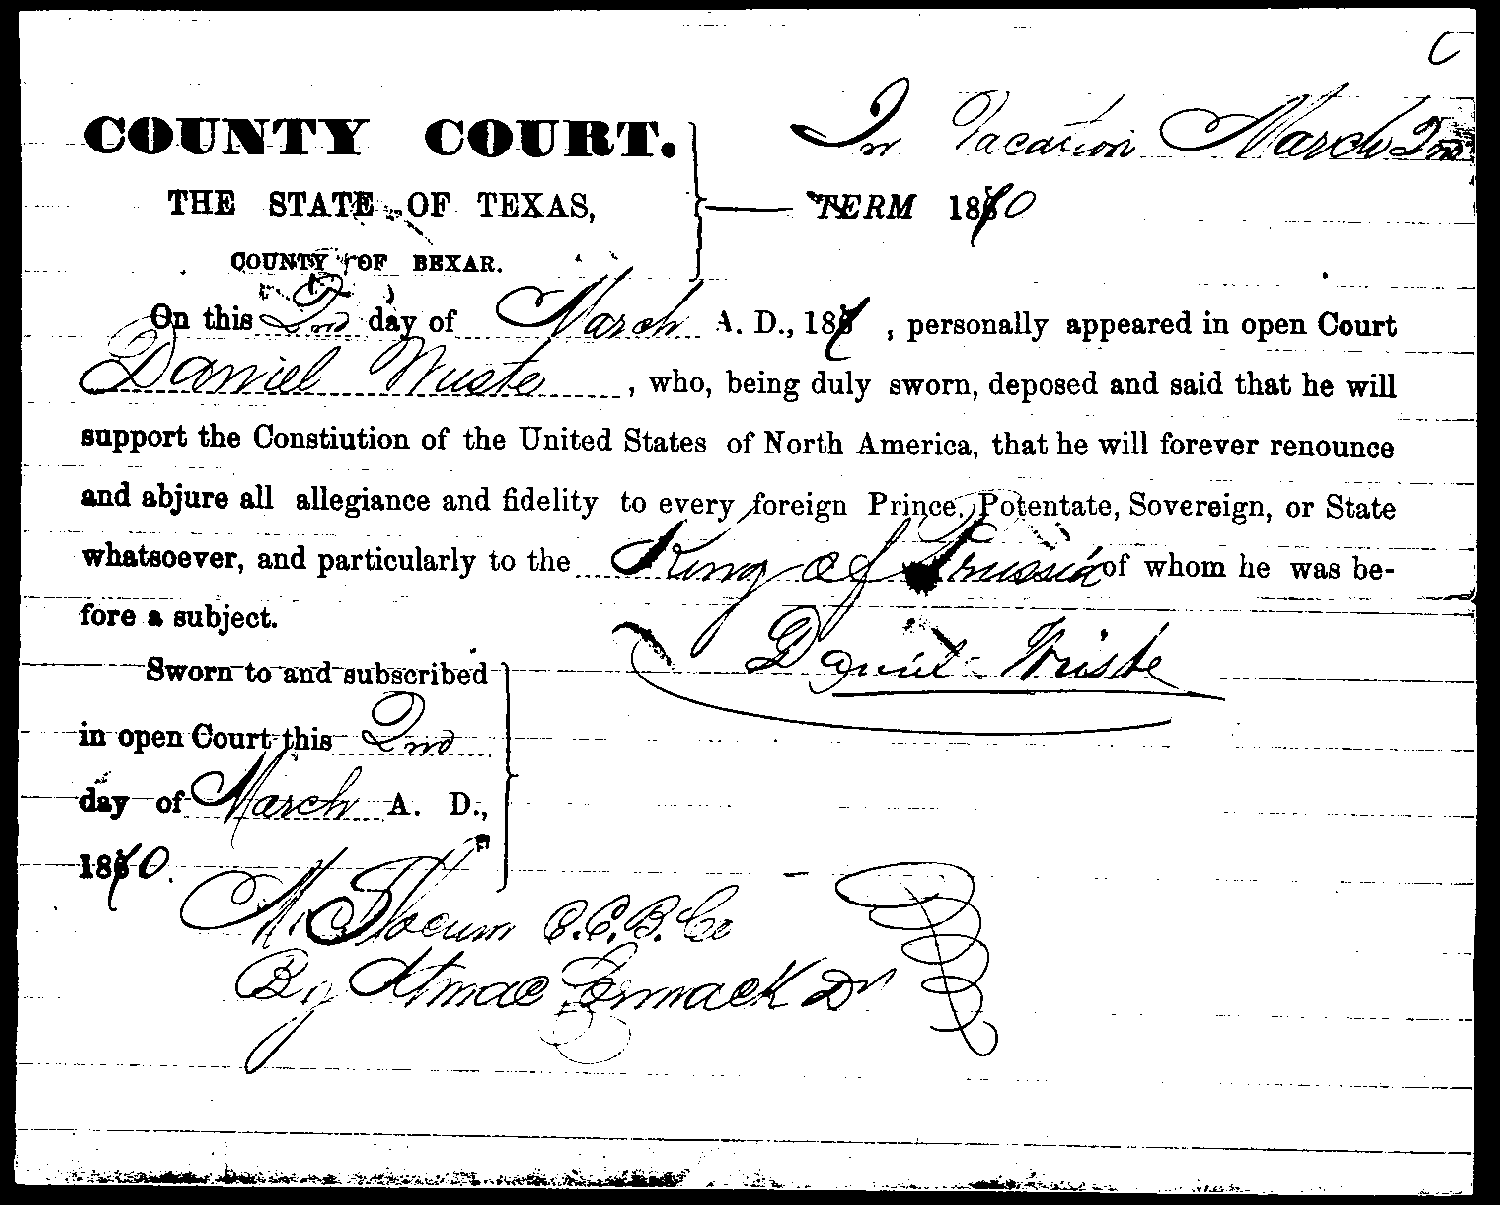 C
COUNTY COURT. In Vacation March 2nd
THE STATE OF TEXAS, TERM 1870
COUNTY OF BEXAR.
On this 2nd day of March A. D., 187 , personally appeared in open Court
Daniel Wuste , who, being duly sworn, deposed and said that he will
support the Constiution of the United States of North America, that he will forever renounce
and abjure all allegiance and fidelity to every foreign Prince, Potentate, Sovereign, or State
whatsoever, and particularly to the King of Prussia of whom he was be-
fore a subject.
Daniel Wuste
Sworn to and subscribed
in open Court this 2nd
day of March A. D.,
1870.
Slocum C.C.B.Co
By Cormack Dy